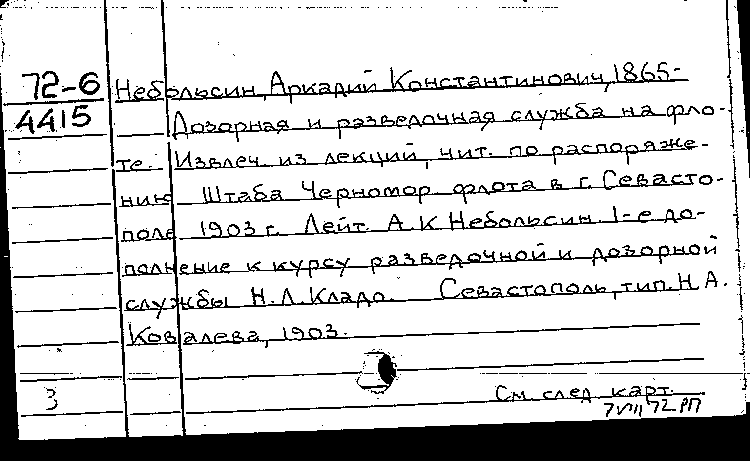 72-6 Небольсин, Аркадий Константинович, 1865-
4415 Дозорная и разведочная служба на фло-
те. Извлеч. из лекций, чит. по распоряже-
нию Штаба Черномор. флота в г. Севасто-
поле 1903 г. Лейт. А. К. Небольсин. 1-е до-
полнение к курсу разведочной и дозорной
службы Н. Л. Кладо. Севастополь, тип. Н. А.
Ковалева, 1903.
3 См. след. карт.
7 VIII 72 РП